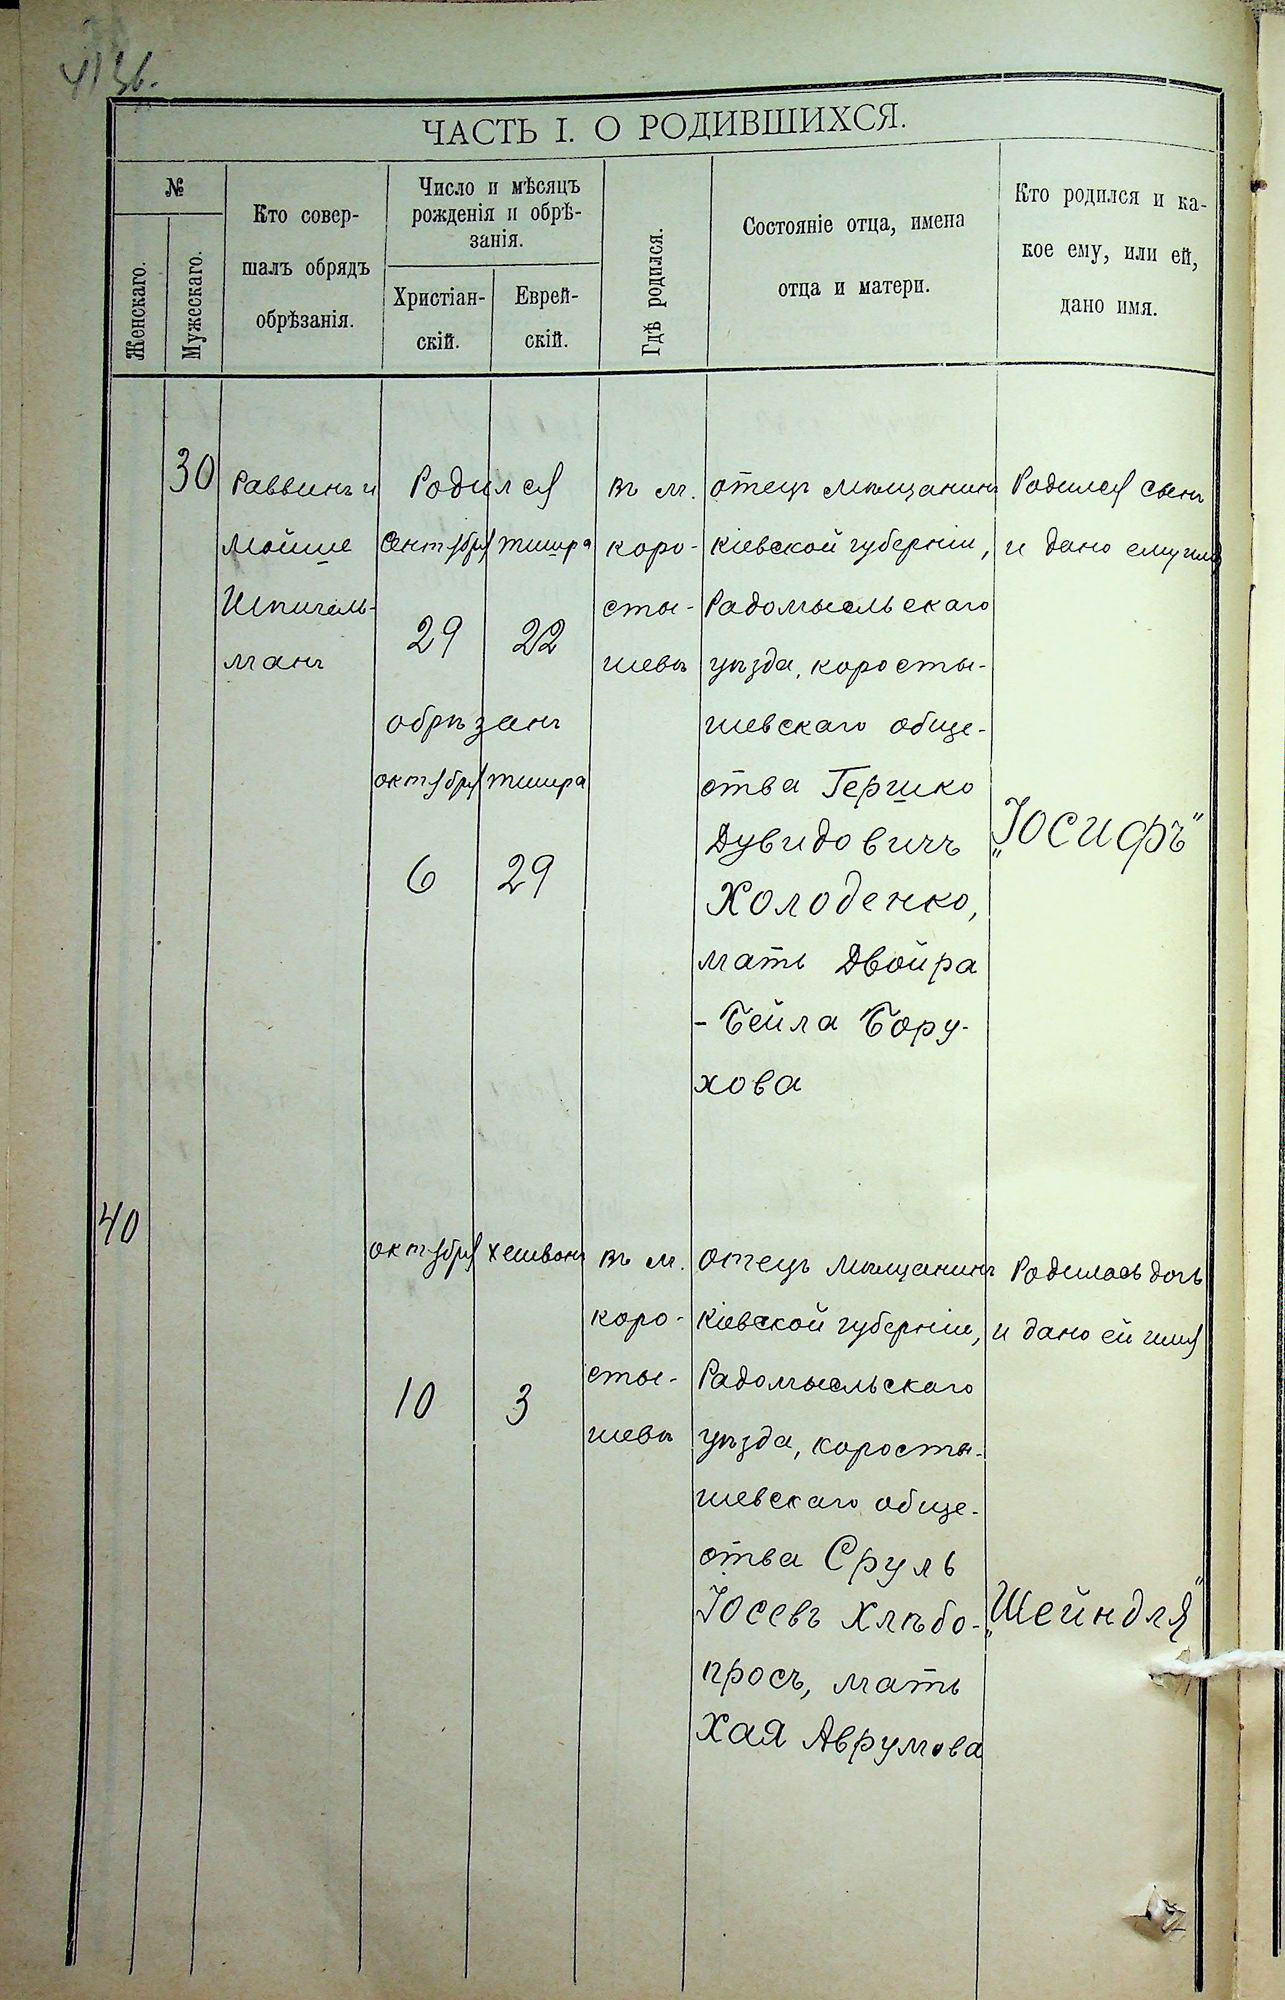 ЧАСТЬ I. О РОДИВШИХСЯ.
№
Женскаго.
Мужескаго.
Кто совер-
шалъ обрядъ
обрѣзанія.
Число и мѣсяцъ
рожденія и обрѣ-
занія.
Христіан-
скій.
Еврей-
скій.
Гдѣ родился.
Состояніе отца, имена
отца и матери.
Кто родился и ка-
кое ему, или ей,
дано имя.
30
Раввинъ и
Мойше
Шпигель-
манъ
Родился
Сентября
Тишра
29
22
обрѣзанъ
октября
Тишра
6
29
въ м.
коро-
сты-
шевѣ
отецъ мѣщанинъ
Кіевской губерніи,
Радомысльскаго
уѣзда, коросты-
шевскаго обще-
ства Гершко
Дувидовичъ
Холоденко,
мать Двойра
-Бейла Бору-
хова
Родился сынъ
и дано ему имя
„Іосифъ"
40
октября
Хешвонъ
10
3
въ м.
коро-
сты-
шевѣ
отецъ мѣщанинъ
Кіевской губерніи,
Радомысльскаго
уѣзда, коросты-
шевскаго обще-
ства Сруль
Іосевъ Хлѣбо-
просъ, мать
Хая Аврумова
Родилась дочь
и дано ей имя
„Шейндля"